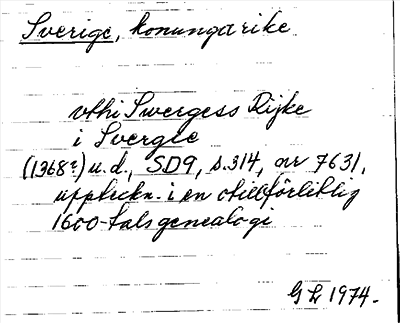 Sverige, konungarike
vthi Swergess Rijke
i Svergle
(1368?) u.d., SD9, s.314, nr 7631,
uppteckn. i en otillförlitlig
1600-tals genealogi
GL 1974.